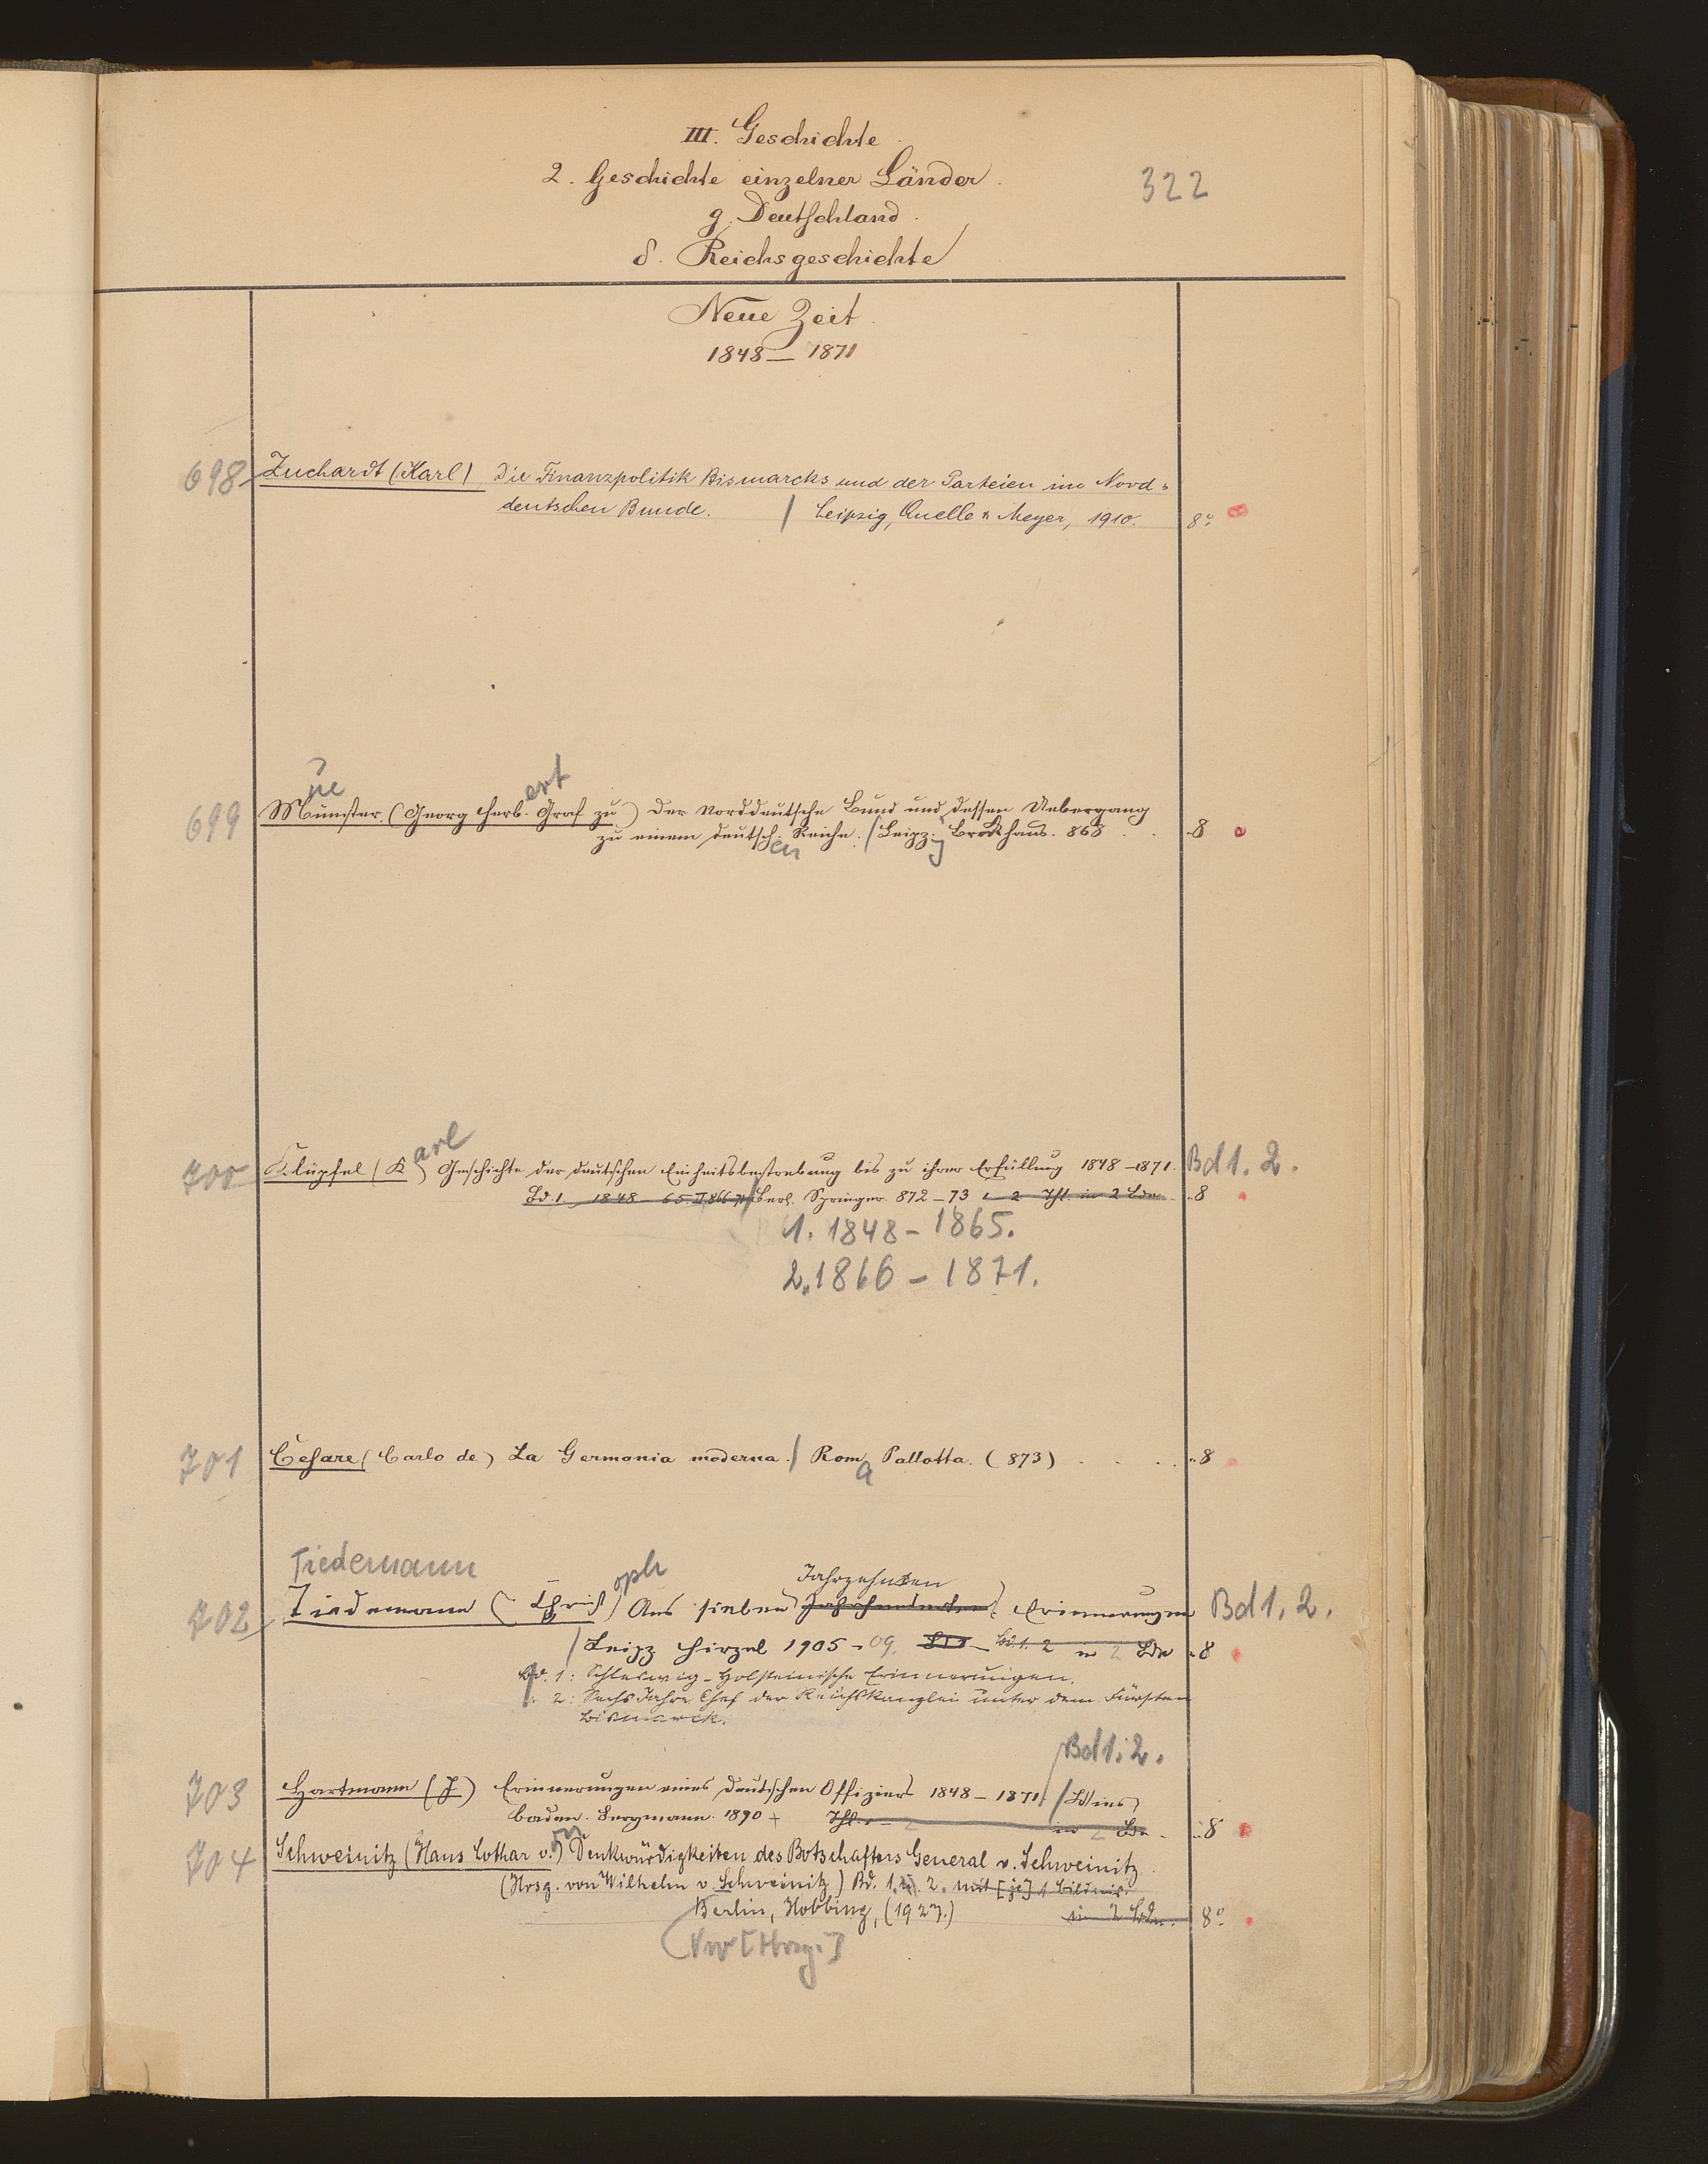 III. Geschichte
2. Geschichte einzelner Länder.
322
g. Deutschland.
δ. Reichsgeschichte
Neue Zeit.
1848 — 1871
698 Zuchardt (Karl) Die Finanzpolitik Bismarcks und der Parteien im Nord-
deutschen Bunde. / Leipzig, Quelle & Meyer, 1910. 8°
ue ert
699 Münster. (Georg Herb. Graf zu) Der Norddeutsche Bund und dessen Uebergang
zu einem deutsch. Reiche. / Leipz. Brockhaus. 868 . . "8
en g
arl
700 Klüpfel (K) Geschichte der deutschen Einheitsbestrebung bis zu ihrer Erfüllung 1848–1871. Bd 1. 2.
Bd. 1. 1848–65. II 866–71 / Berl. Springer 872–73 2 Thl. in 2 Bdn. "8
1. 1848 – 1865.
2. 1866 – 1871.
701 Cesare (Carlo de) La Germania moderna. / Rom Pallotta. (873) . . . "8
a
Tiedemann oph Jahrzehnten
702 Tiedemann (Christ) Aus sieben Jahrhunderten. Erinnerungen Bd 1. 2.
/ Leipz Hirzel 1905–09. Bd. 1. 2 in 2 Bdn "8
Bd. 1: Schleswig-Holsteinische Erinnerungen.
" 2: Sechs Jahre Chef der Reichskanzlei unter dem Fürsten
Bismarck.
Bd 1. 2.
703 Hartmann (J) Erinnerungen eines deutschen Offiziers 1848–1871. / Wies
baden. Bergmann. 1890 + Thl. 1–2 in 2 Bdn. "8
on
704 Schweinitz (Hans Lothar v.) Denkwürdigkeiten des Botschafters General v. Schweinitz.
(Hrsg. von Wilhelm v. Schweinitz) Bd. 1. u. 2. mit [je] 1 Bildnis.
Berlin, Hobbing, (1927.) in 2 Bdn. 8°
[Hrsg.]